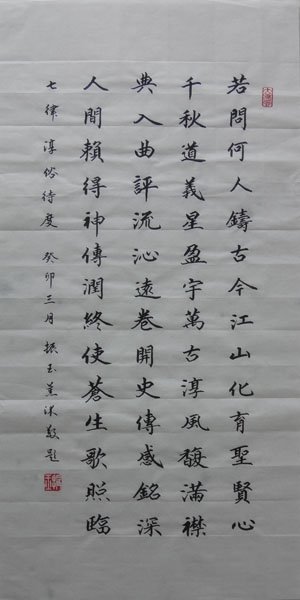 若問何人鑄古今江山化育聖賢心
千秋道義星盈宇萬古淳風馥滿襟
典入曲評流沁遠卷開史傳感銘深
人間賴得神傳潤終使蒼生歌照臨
七律 淳俗待度 癸卯三月 振玉 敬題